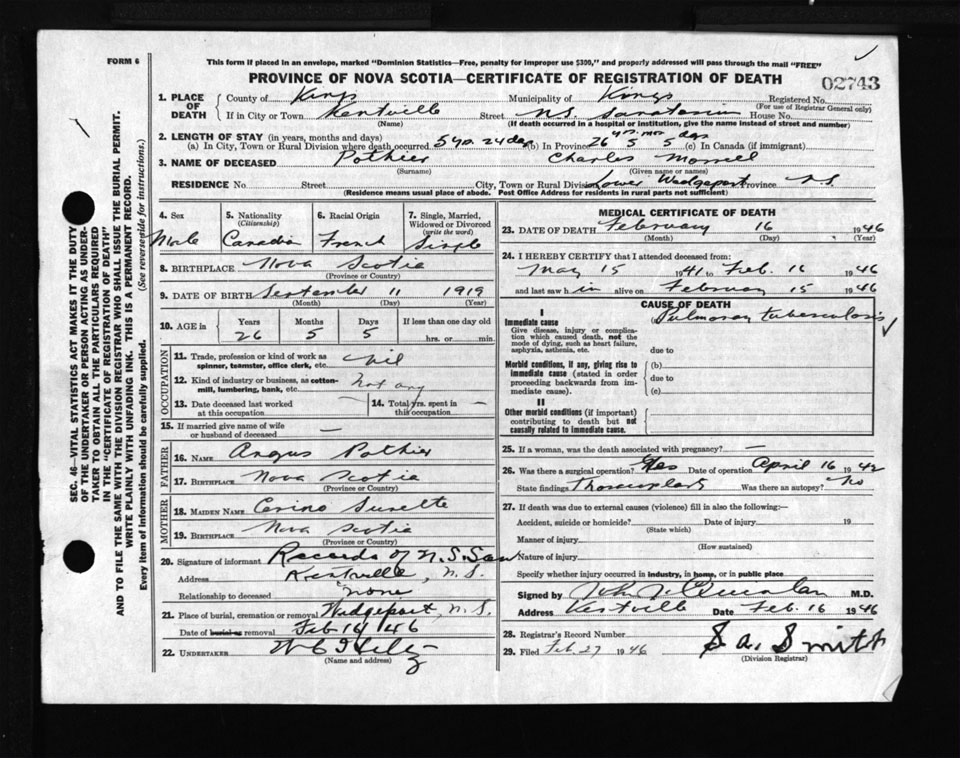 FORM 6
This form if placed in an envelope, marked "Dominion Statistics—Free, penalty for improper use $300," and properly addressed will pass through the mail "FREE"
PROVINCE OF NOVA SCOTIA—CERTIFICATE OF REGISTRATION OF DEATH
02743
1. PLACE OF DEATH
County of Kings Municipality of Kings Registered No.
(For use of Registrar General only)
If in City or Town Kentville Street N.S. Sanatorium House No.
(Name) (If death occurred in a hospital or institution, give the name instead of street and number)
2. LENGTH OF STAY (in years, months and days)
(a) In City, Town or Rural Division where death occurred 5 yrs. 24 days (b) In Province 26 yrs. 5 mos 5 days (c) In Canada (if immigrant)
3. NAME OF DECEASED Pothier Charles
(Surname) (Given name or names)
RESIDENCE No. Street City, Town or Rural Division Lower Wedgeport Province N.S.
(Residence means usual place of abode. Post Office Address for residents in rural parts not sufficient)
4. Sex
Male
5. Nationality
(Citizenship)
Canadian
6. Racial Origin
French
7. Single, Married, Widowed or Divorced
(write the word)
Single
8. BIRTHPLACE Nova Scotia
(Province or Country)
9. DATE OF BIRTH September 11 1919
(Month) (Day) (Year)
10. AGE in Years Months Days If less than one day old
26 5 5 hrs. or min.
OCCUPATION
11. Trade, profession or kind of work as spinner, teamster, office clerk, etc. nil
12. Kind of industry or business, as cotton-mill, lumbering, bank, etc. not any
13. Date deceased last worked at this occupation —
14. Total yrs. spent in this occupation —
15. If married give name of wife or husband of deceased —
FATHER
16. NAME Angus Pothier
17. BIRTHPLACE Nova Scotia
(Province or Country)
MOTHER
18. MAIDEN NAME Surette
19. BIRTHPLACE Nova Scotia
(Province or Country)
20. Signature of informant Records of N.S. San
Address Kentville, N.S.
Relationship to deceased none
21. Place of burial, cremation or removal Wedgeport, N.S.
Date of burial or removal Feb 16/46
22. UNDERTAKER
(Name and address)
MEDICAL CERTIFICATE OF DEATH
23. DATE OF DEATH February 16 1946
(Month) (Day) (Year)
24. I HEREBY CERTIFY that I attended deceased from:
May 15 1941 to Feb. 16 1946
and last saw him alive on February 15 1946
CAUSE OF DEATH
I
Immediate cause
Give disease, injury or complication which caused death, not the mode of dying, such as heart failure, asphyxia, asthenia, etc.
Pulmonary tuberculosis
due to
Morbid conditions, if any, giving rise to immediate cause (stated in order proceeding backwards from immediate cause).
(b)
due to
(c)
II
Other morbid conditions (if important) contributing to death but not causally related to immediate cause.
25. If a woman, was the death associated with pregnancy? —
26. Was there a surgical operation? Yes Date of operation April 16 1942
State findings Thoracoplasty Was there an autopsy? No
27. If death was due to external causes (violence) fill in also the following:—
Accident, suicide or homicide? Date of injury 19
(State which)
Manner of injury
(How sustained)
Nature of injury
Specify whether injury occurred in industry, in home, or in public place
Signed by M.D.
Address Kentville Date Feb. 16 1946
28. Registrar's Record Number
29. Filed Feb. 27 1946 S. A. Smith
(Division Registrar)
SEC. 46—VITAL STATISTICS ACT MAKES IT THE DUTY
OF THE UNDERTAKER OR PERSON ACTING AS UNDER-
TAKER TO OBTAIN ALL THE PARTICULARS REQUIRED
IN THE "CERTIFICATE OF REGISTRATION OF DEATH"
AND TO FILE THE SAME WITH THE DIVISION REGISTRAR WHO SHALL ISSUE THE BURIAL PERMIT.
WRITE PLAINLY WITH UNFADING INK. THIS IS A PERMANENT RECORD.
Every item of information should be carefully supplied. (See reverse side for instructions.)